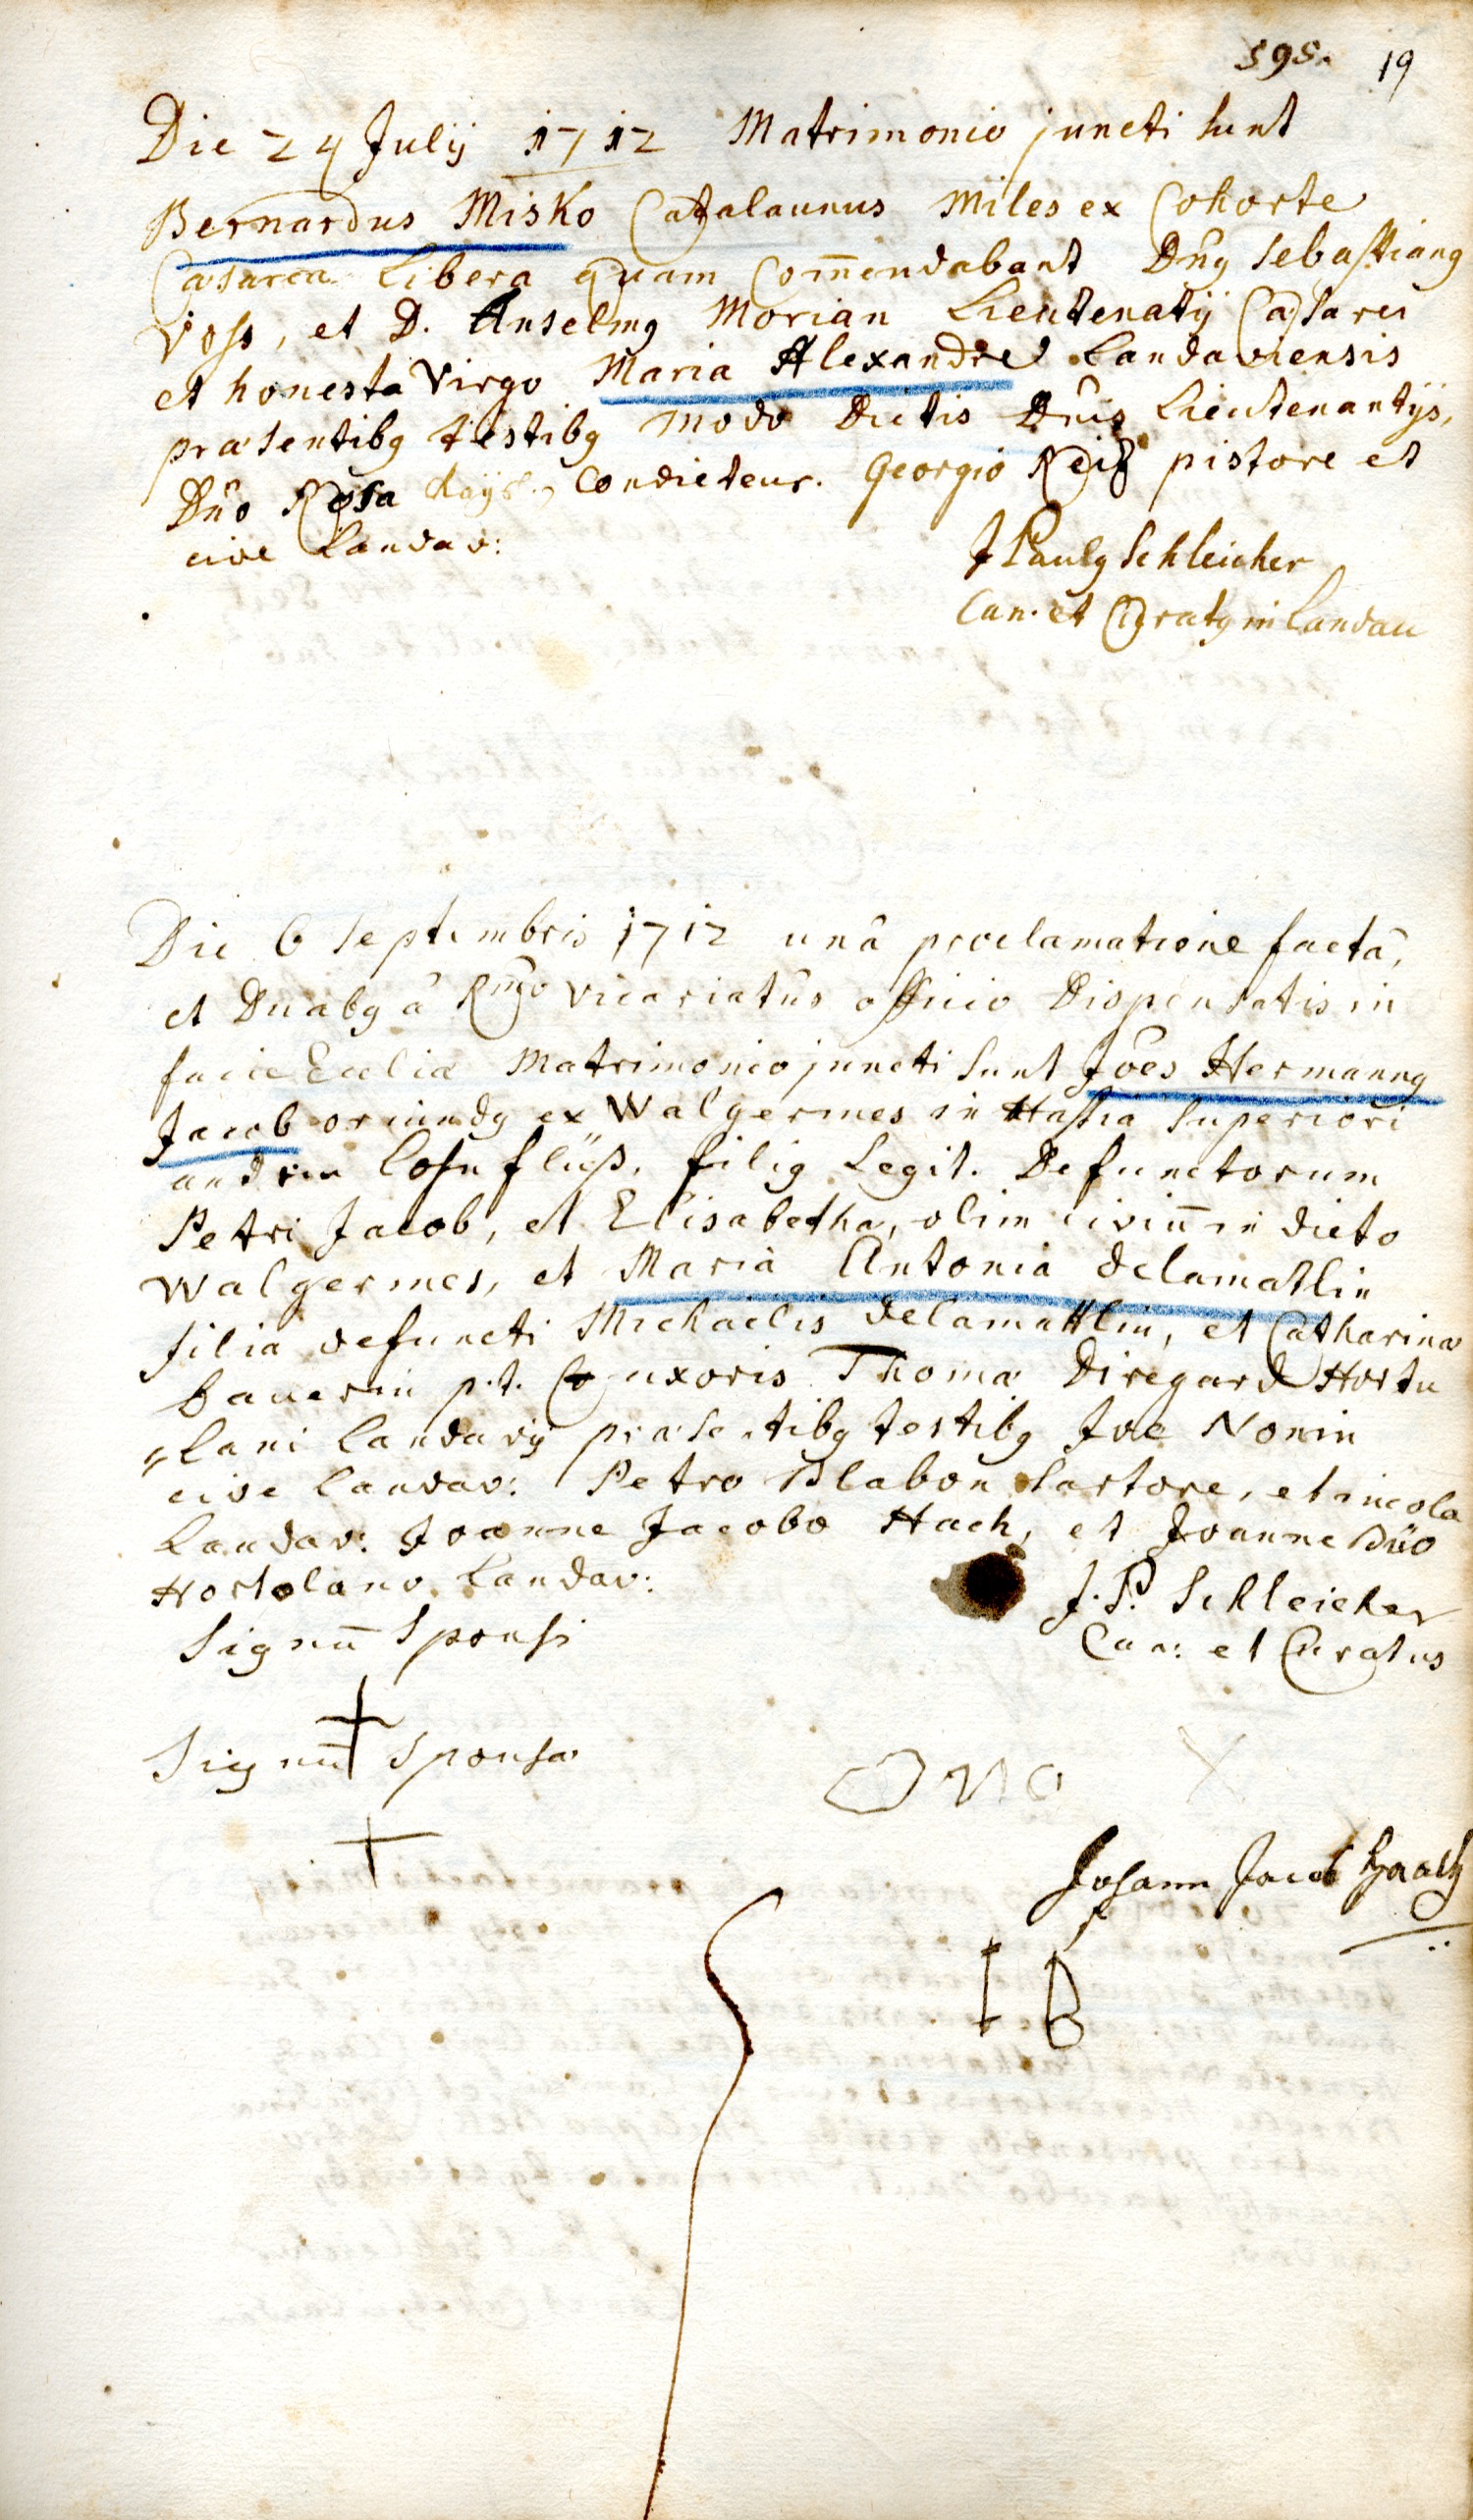 595. 19
Die 24 Julij 1712 Matrimonio juncti sunt
Bernardus Misko Catalaunus Miles ex Cohorte
Cæsarea Libera quam Com̄endabant Dn̄9 Sebastian9
Voss, et D. Anselm9 Morian Lieutenatij Cæsarei
et honesta Virgo Maria Alexandre Landaviensis
præsentib9 testib9 modo Dictis Dn̄is Lieutenantijs,
Dn̄o Rosa Kays. Condicteur. Georgio Reis pistore et
cive Landav:
J Paul9 Schleicher
Can. et Curat9 in Landau
Die 6 Septembris 1712 unâ proclamatione factâ,
et Duab9 â Rm̄o Vicariatûs officio Dispensatis in
facie Eccliæ Matrimonio juncti sunt Jōes Hermann9
Jacob oriund9 ex Walgermes in Hassia Superiori
an der Losn flüß. fili9 Legit. Defunctorum
Petri Jacob, et Elisabetha, olim civiū in dicto
Walgermes, et Maria Antonia Delamatlin
filia defuncti Michaelis Delamattlin, et Catharinæ
Bauerin p.t. uxoris Thomæ Diregard Hortu
„lani Landavij præsentib9 testib9 Joe Nonin
cive Landav: Petro Blabon Sartore, et incola
Landav: Joanne Jacobo Hach, et Joanne Düo
Hortolano Landav:
J. P. Schleicher
Signū Sponsi
Can: et Curatus
Signū Sponsæ
Ono X
Johann Jacob Haach
I B